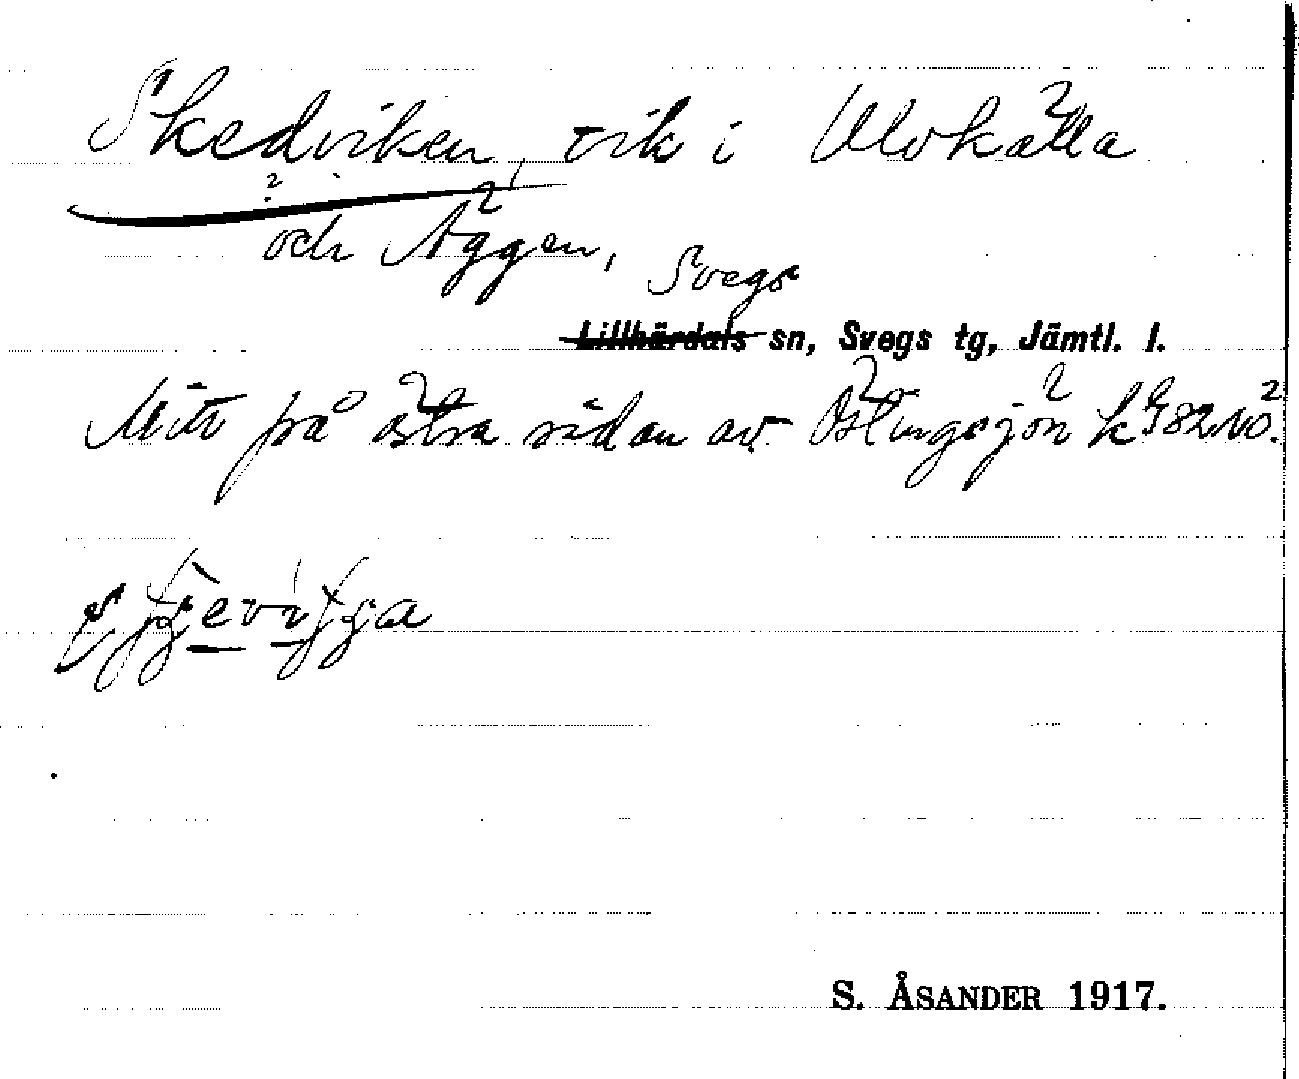 Skedviken, vik i Ulvkälla
och Äggen,
Svegs
Lillhärdals sn, Svegs tg, Jämtl. l.
Mitt på östra sidan av Östingsjön k 982 NO.
S. ÅSANDER 1917.